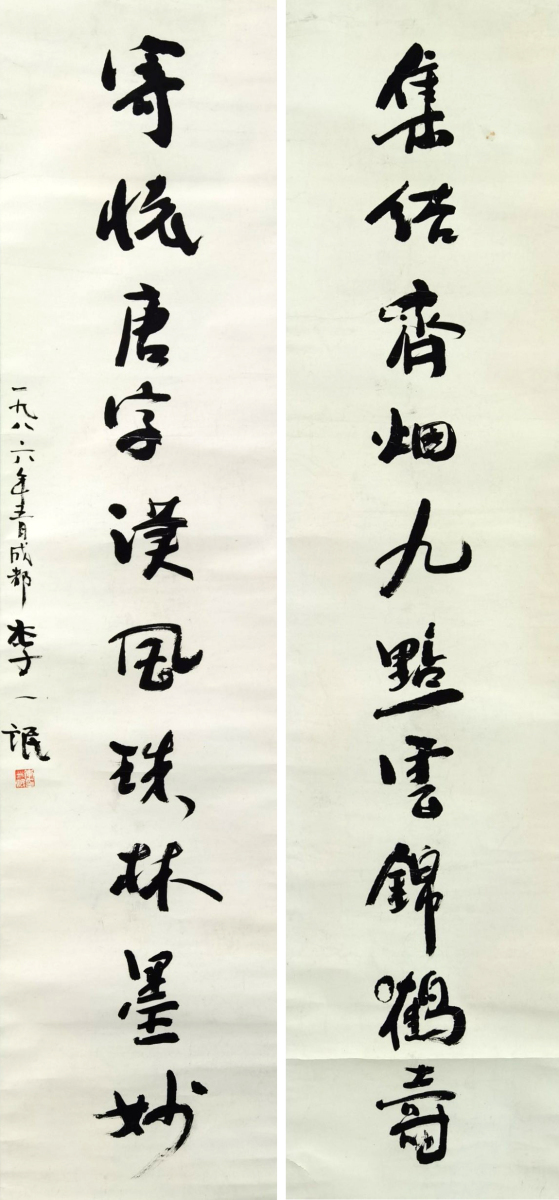 集结齊烟九點雲錦鶴壽
寄怳唐字漢風珠林墨妙
一九八六年青成都 李一氓